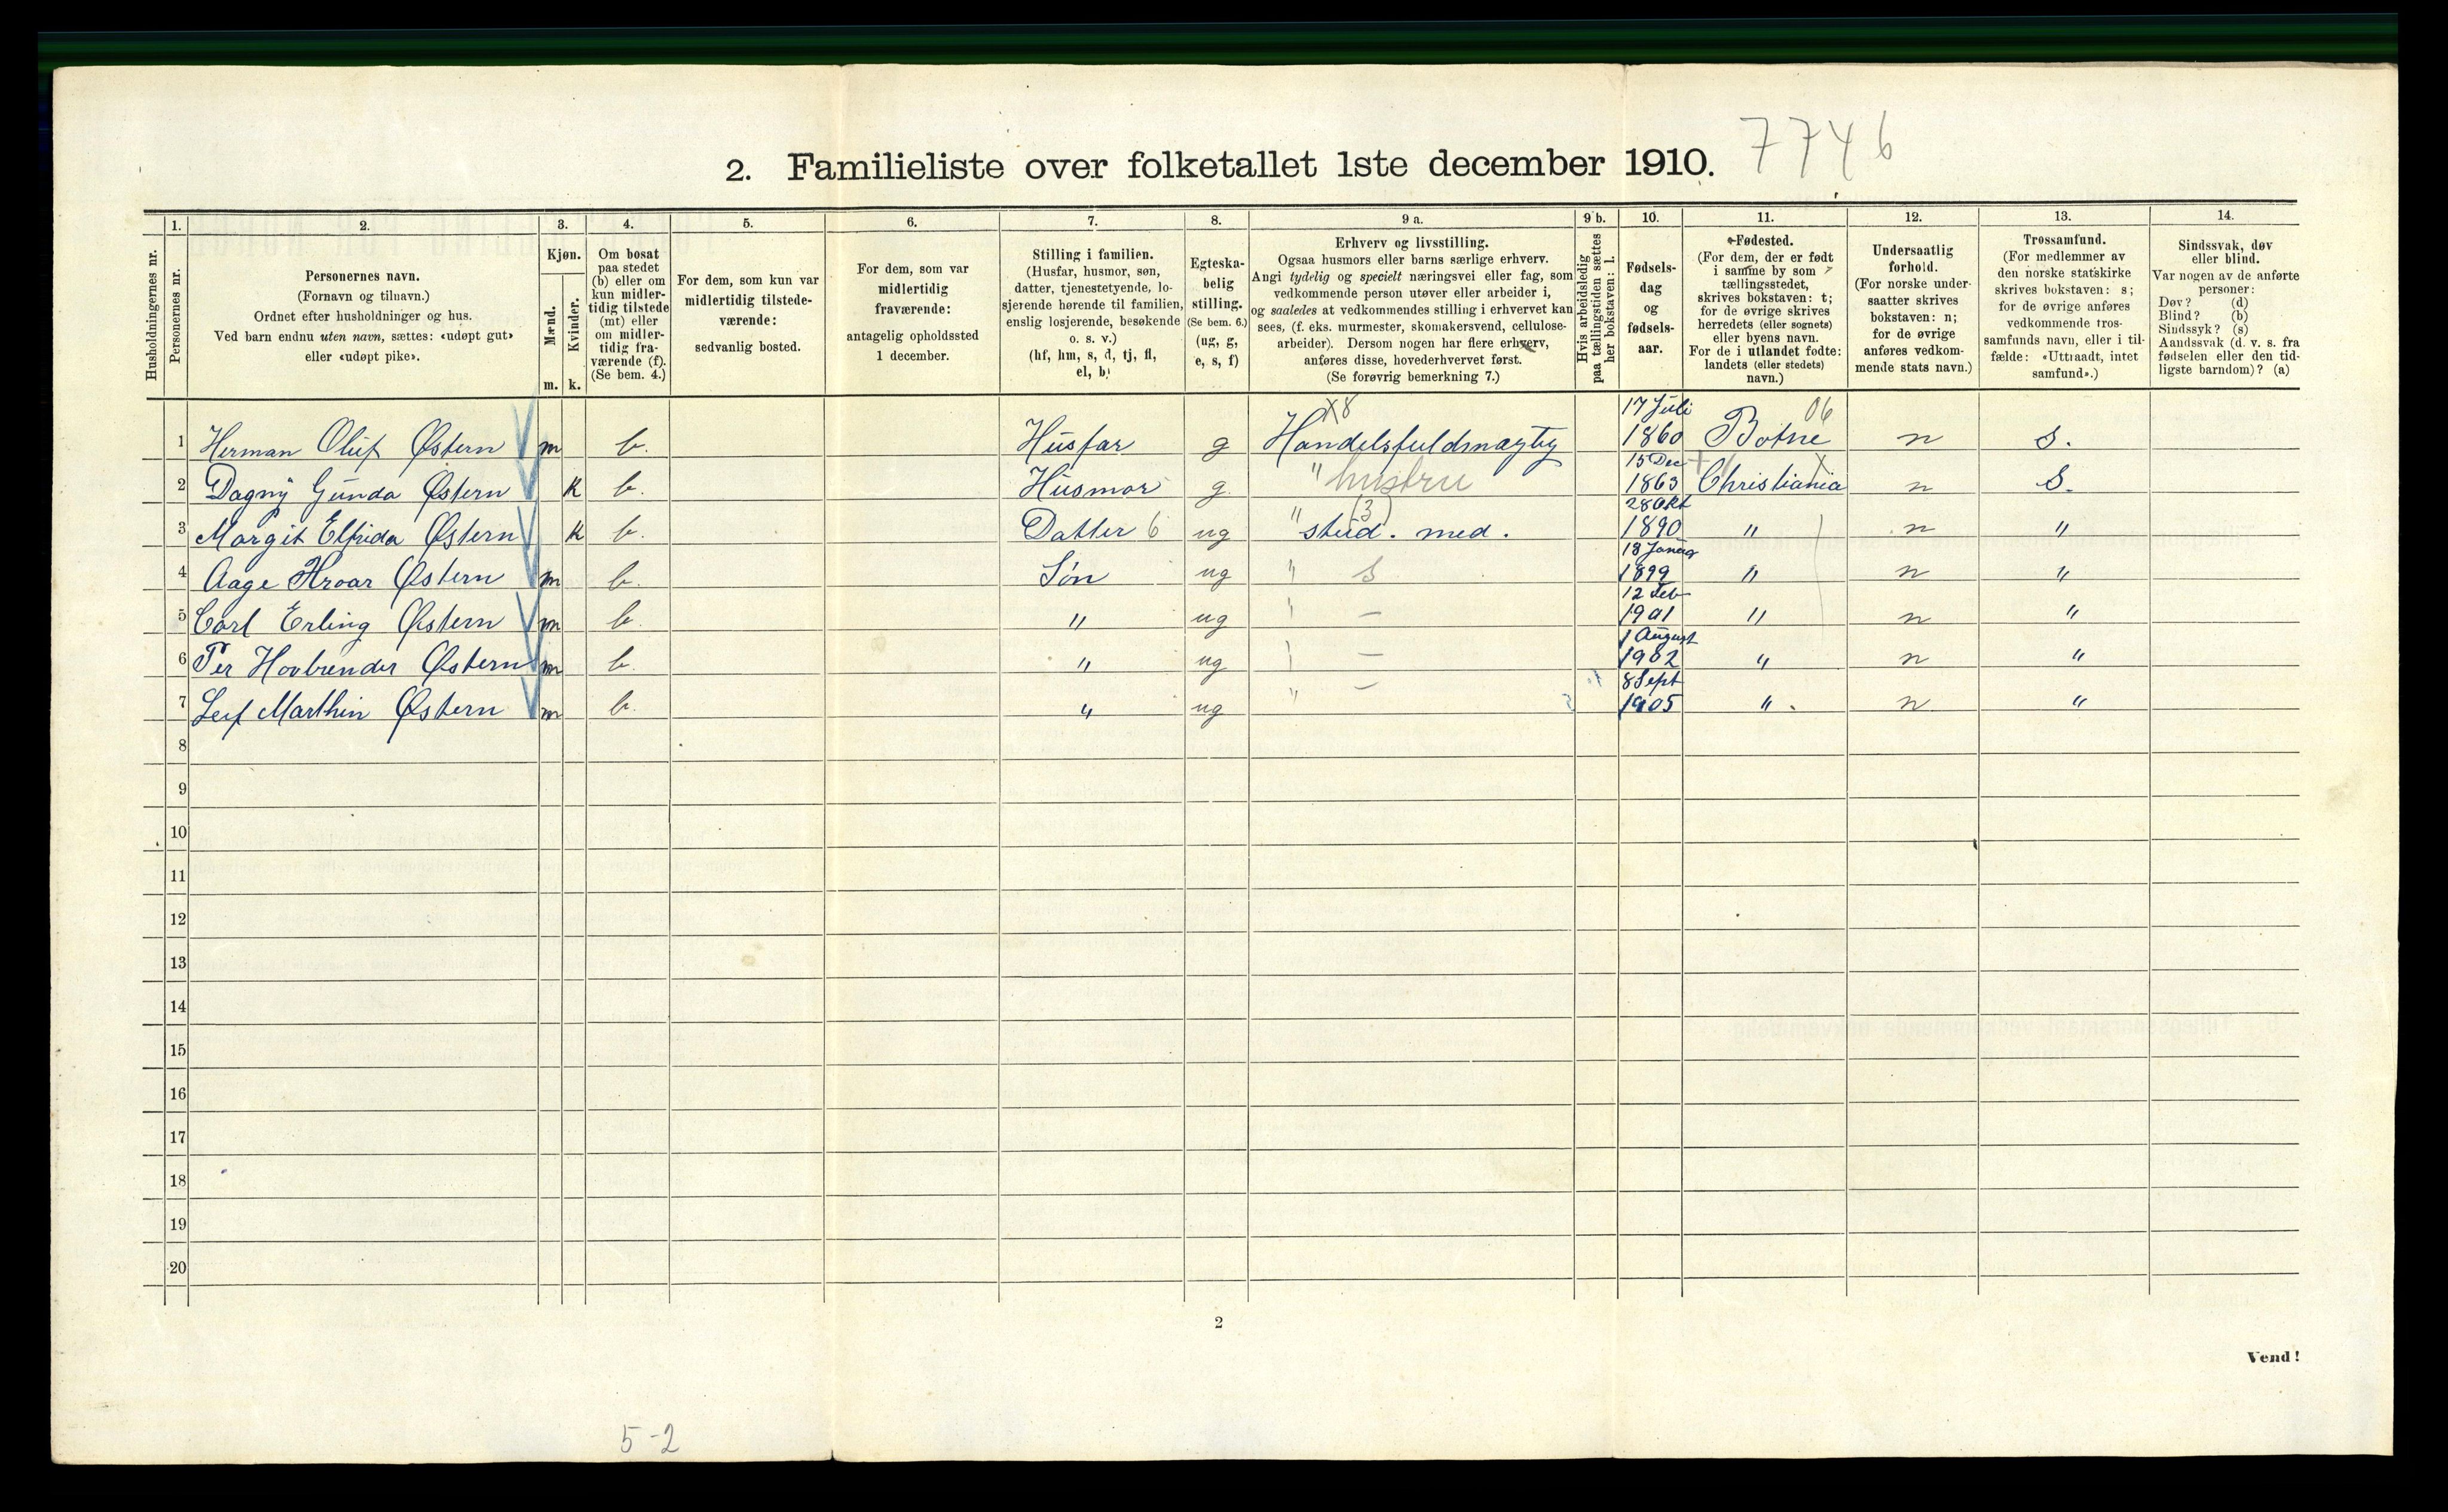 2. Familieliste over folketallet 1ste december 1910. 7746
1. 2. 3. 4. 5. 6. 7. 8. 9 a. 9 b. 10. 11. 12. 13. 14.
Husholdningernes nr.
Personernes nr.
Personernes navn.
(Fornavn og tilnavn.)
Ordnet efter husholdninger og hus.
Ved barn endnu uten navn, sættes: «udøpt gut»
eller «udøpt pike».
Kjøn.
Mænd.
m.
Kvinder.
k.
Om bosat
paa stedet
(b) eller om
kun midler-
tidig tilstede
(mt) eller
om midler-
tidig fra-
værende (f).
(Se bem. 4.)
For dem, som kun var
midlertidig tilstede-
værende:
sedvanlig bosted.
For dem, som var
midlertidig
fraværende:
antagelig opholdssted
1 december.
Stilling i familien.
(Husfar, husmor, søn,
datter, tjenestetyende, lo-
sjerende hørende til familien,
enslig losjerende, besøkende
o. s. v.)
(hf, hm, s, d, tj, fl,
el, b)
Egteska-
belig
stilling.
(Se bem. 6.)
(ug, g,
e, s, f)
Erhverv og livsstilling.
Ogsaa husmors eller barns særlige erhverv.
Angi tydelig og specielt næringsvei eller fag, som
vedkommende person utøver eller arbeider i,
og saaledes at vedkommendes stilling i erhvervet kan
sees, (f. eks. murmester, skomakersvend, cellulose-
arbeider). Dersom nogen har flere erhverv,
anføres disse, hovederhvervet først.
(Se forøvrig bemerkning 7.)
Hvis arbeidsledig
paa tællingstiden sættes
her bokstaven: l.
Fødsels-
dag
og
fødsels-
aar.
Fødested.
(For dem, der er født
i samme by som
tællingsstedet,
skrives bokstaven: t;
for de øvrige skrives
herredets (eller sognets)
eller byens navn.
For de i utlandet fødte:
landets (eller stedets)
navn.)
Undersaatlig
forhold.
(For norske under-
saatter skrives
bokstaven: n;
for de øvrige
anføres vedkom-
mende stats navn.)
Trossamfund.
(For medlemmer av
den norske statskirke
skrives bokstaven: s;
for de øvrige anføres
vedkommende tros-
samfunds navn, eller i til-
fælde: «Uttraadt, intet
samfund».)
Sindssvak, døv
eller blind.
Var nogen av de anførte
personer:
Døv? (d)
Blind? (b)
Sindssyk? (s)
Aandssvak (d. v. s. fra
fødselen eller den tid-
ligste barndom)? (a)
1 Herman Oluf Østern m b. Husfar g X8 Handelsfuldmægtig 17 Juli 1860 Botne 06 n s.
2 Dagny Gunda Østern K b. Husmor g. " hustru 15 Dec 1863 Christiania n S.
3 Margit Elfrida Østern K b. Datter 6 ug " (3) stud. med. 28 Okt 1890 " n "
4 Aage Hroar Østern m b. Søn ug " s 18 Januar 1899 " n "
5 Carl Erling Østern m b. " ug " — 12 Feb 1901 " n "
6 Per Hovbrender Østern m b. " ug " — 1 August 1902 " n "
7 Leif Marthin Østern m b. " ug " — 8 Sept 1905 " n "
8
9
10
11
12
13
14
15
16
17
18
19
20
2
Vend!
5-2